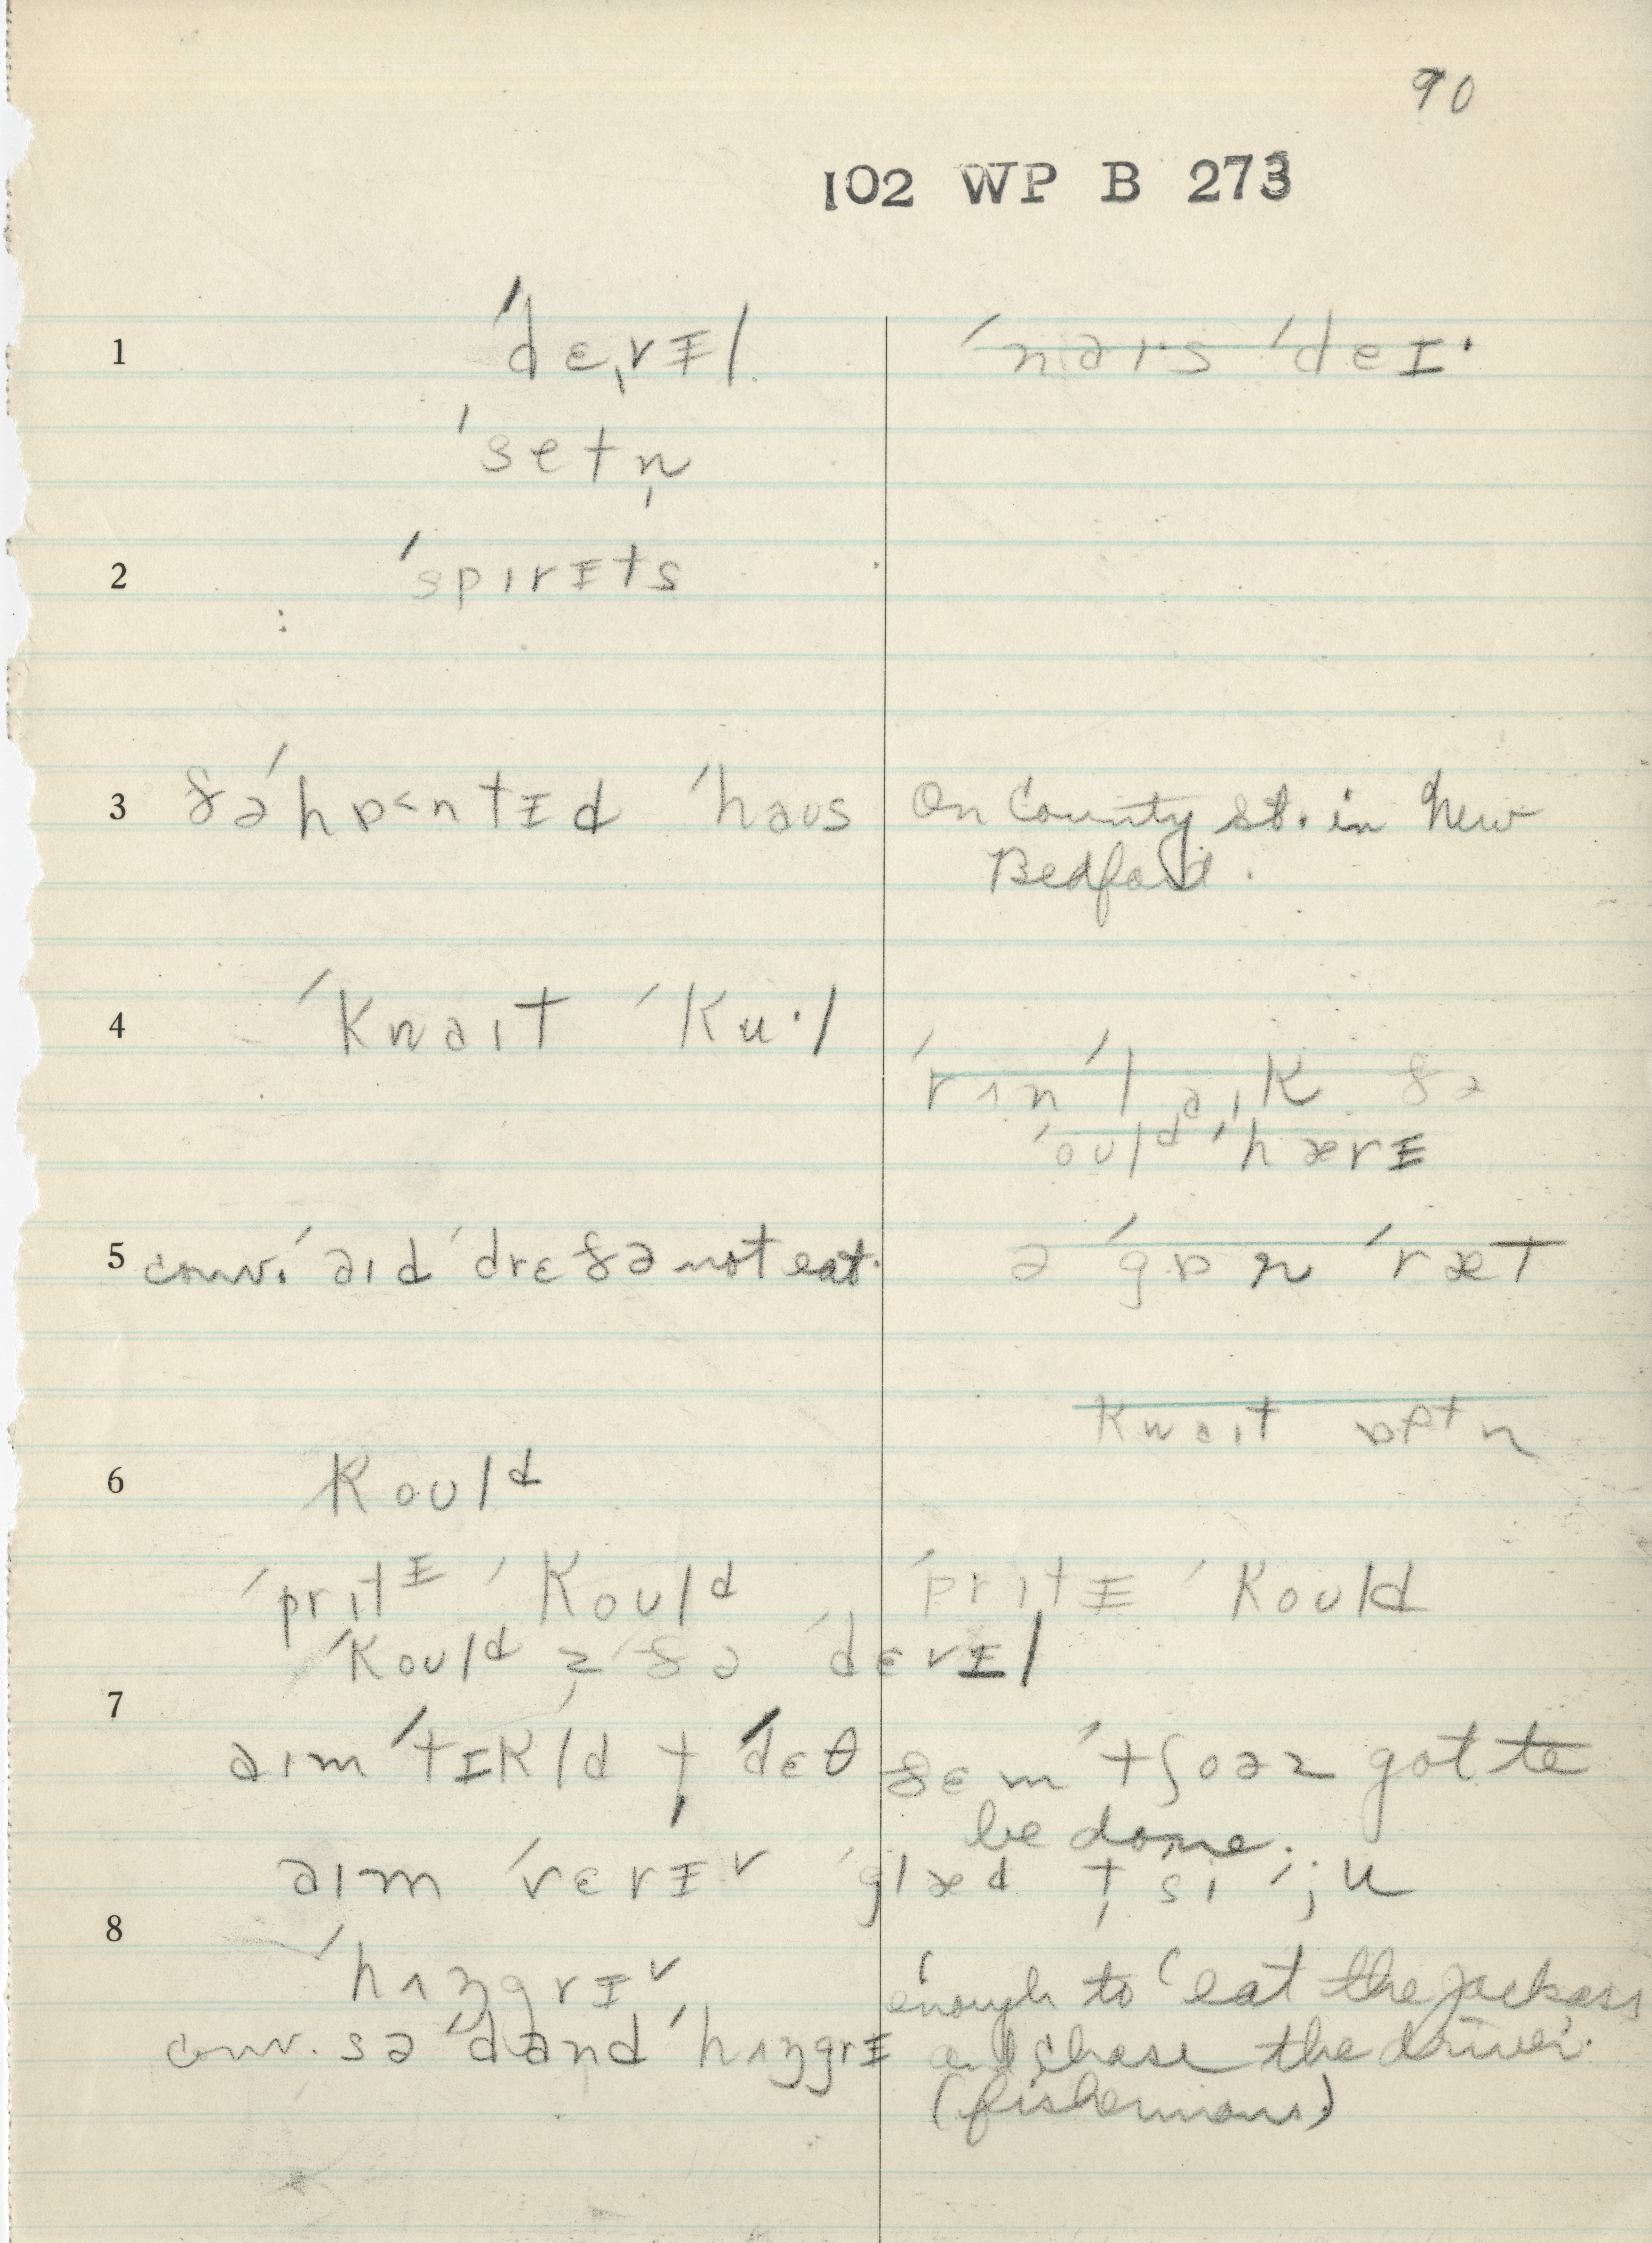 90
102 WP B 273
1 ˈdɛˌvɪ̵l ˈnaɪˑs ˈdeɪˑ
ˈsetn̩
2 ˈspɪrɪ̵ts
3 ðəˈhɒ˂ntɪ̵d ˈhaʊs On County St. in New
Bedford.
4 ˈkwaɪt ˈkuˑl
ˈrʌn ˈlaɪk ðə
ˈoʊlᵈ ˈhærɪ̵
5 conv. ˈaɪd ˈdrɛðə not eat. ə ˈgɒn ˈræt
kwaɪt ɒptn
6 koʊlᵈ
ˈprɪtᶦ̵ ˈkoʊlᵈ ˈprɪtɪ̵ ˈkoʊld
ˈkoʊlᵈ z̩ ðə ˈdɛvɪ̵l
7
aɪm ˈtɪkld t̩ ˈdɛθ ðɛm ˈtʃoəz got to
be done.
aɪm ˈvɛrɪ̵˅ ˈglæd t̩ si ˈju
8
ˈhʌŋgrɪ̵˅ enough to eat the jackass
conv. sə ˈdand ˈhʌŋgrɪ̵ and chase the driver.
(fishermans)